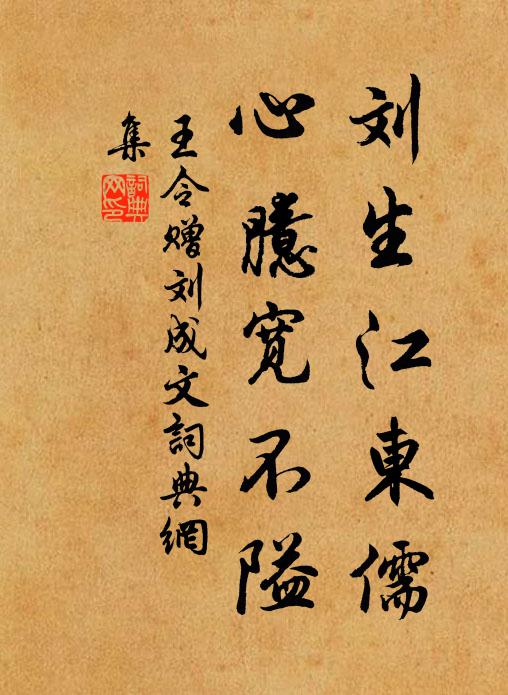 刘生江東儒
心臆寬不隘
王令赠刘成文詞典網
集
詞典网印